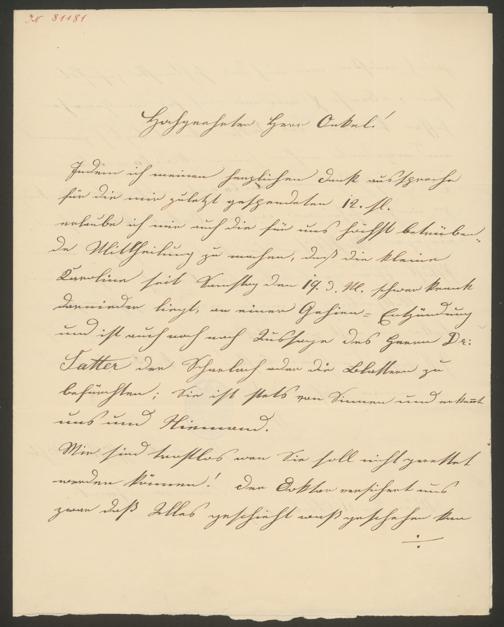 IN 81181
Hochgeehrter Herr Onkel!
Indem ich meinen herzlichen Dank ausspreche
für die mir zuletzt gespendeten 12. fl.
erlaube ich mir auch die für uns höchst betrüben-
de Mittheilung zu machen, daß die kleine
Karoline seit Samstag den 19. d. M. schwer krank
darnieder liegt, an einer Gehirn- Entzündung
und ist auch noch nach Aussage des Herrn Dr:
Tatter der Scharlach oder die Blattern zu
befürchten; Sie ist stets von Sinnen und erkennt
uns und Niemand.
Wir sind trostlos wen Sie soll nicht gerettet
werden können! Der Doktor versichert uns
zwar daß Alles geschieht waß geschehen kan